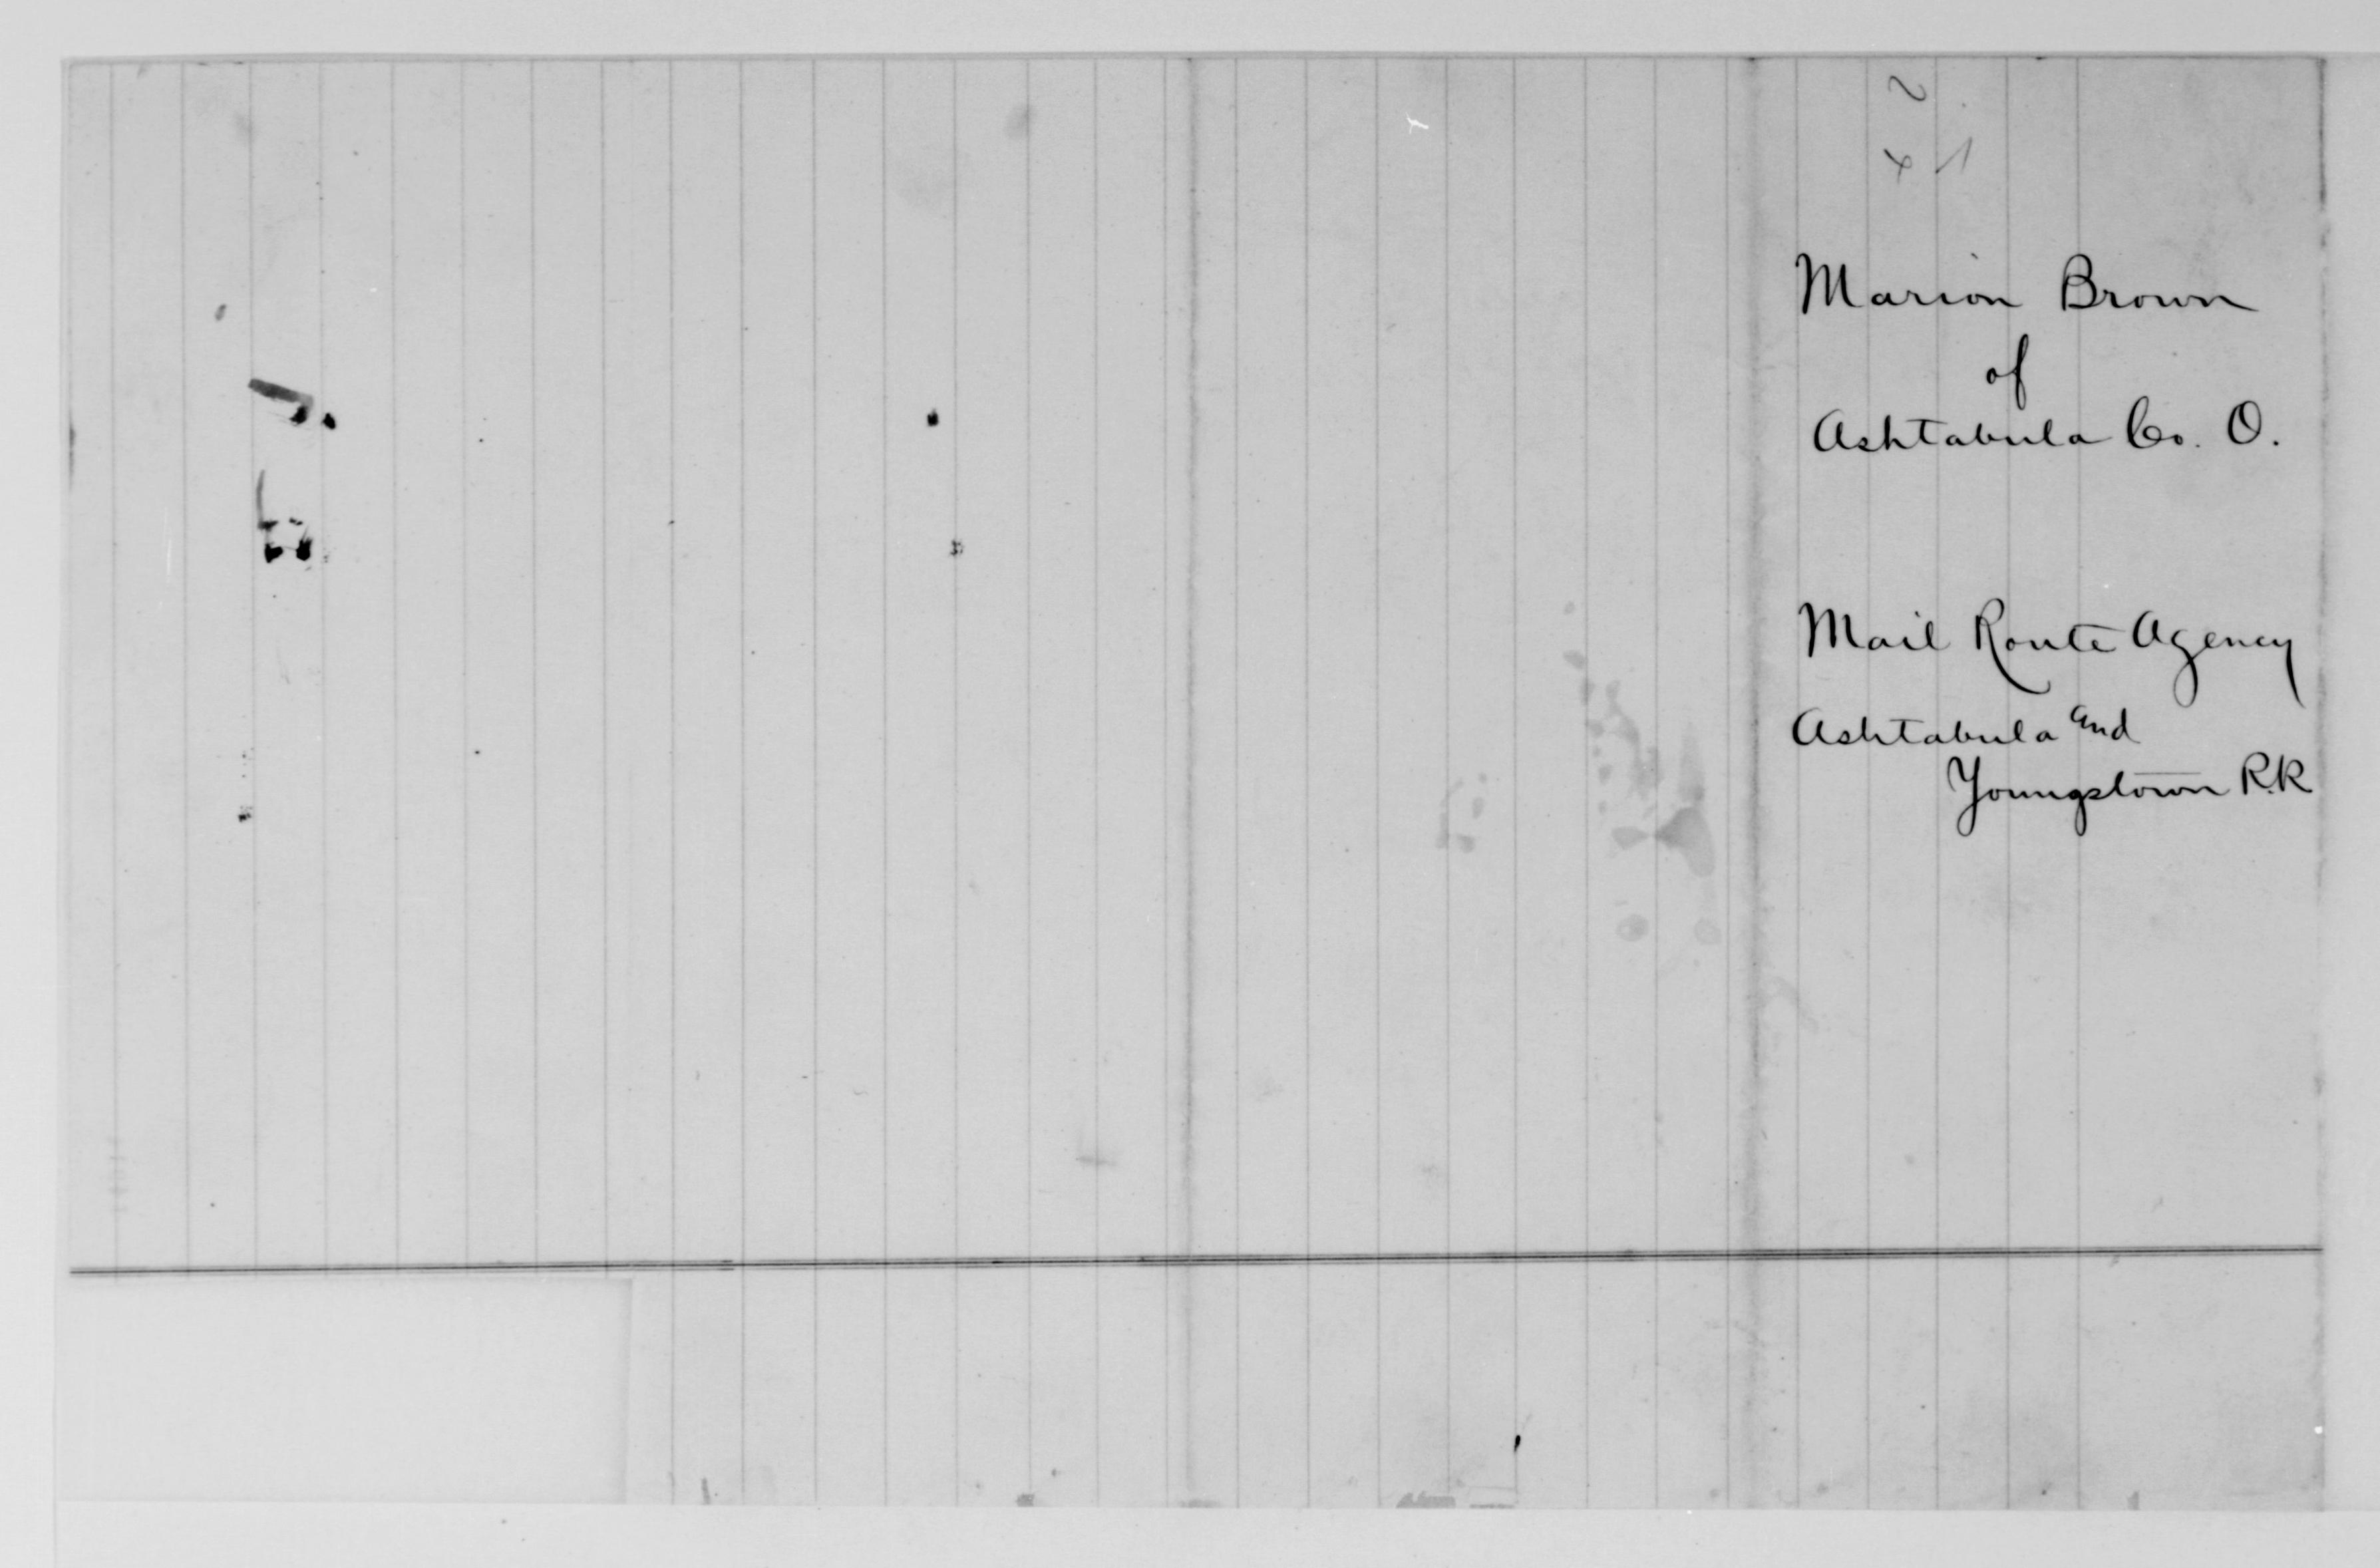 Marion Brown
of
Ashtabula Co. O.
Mail Route Agency
Ashtabula and
Youngstown R.R